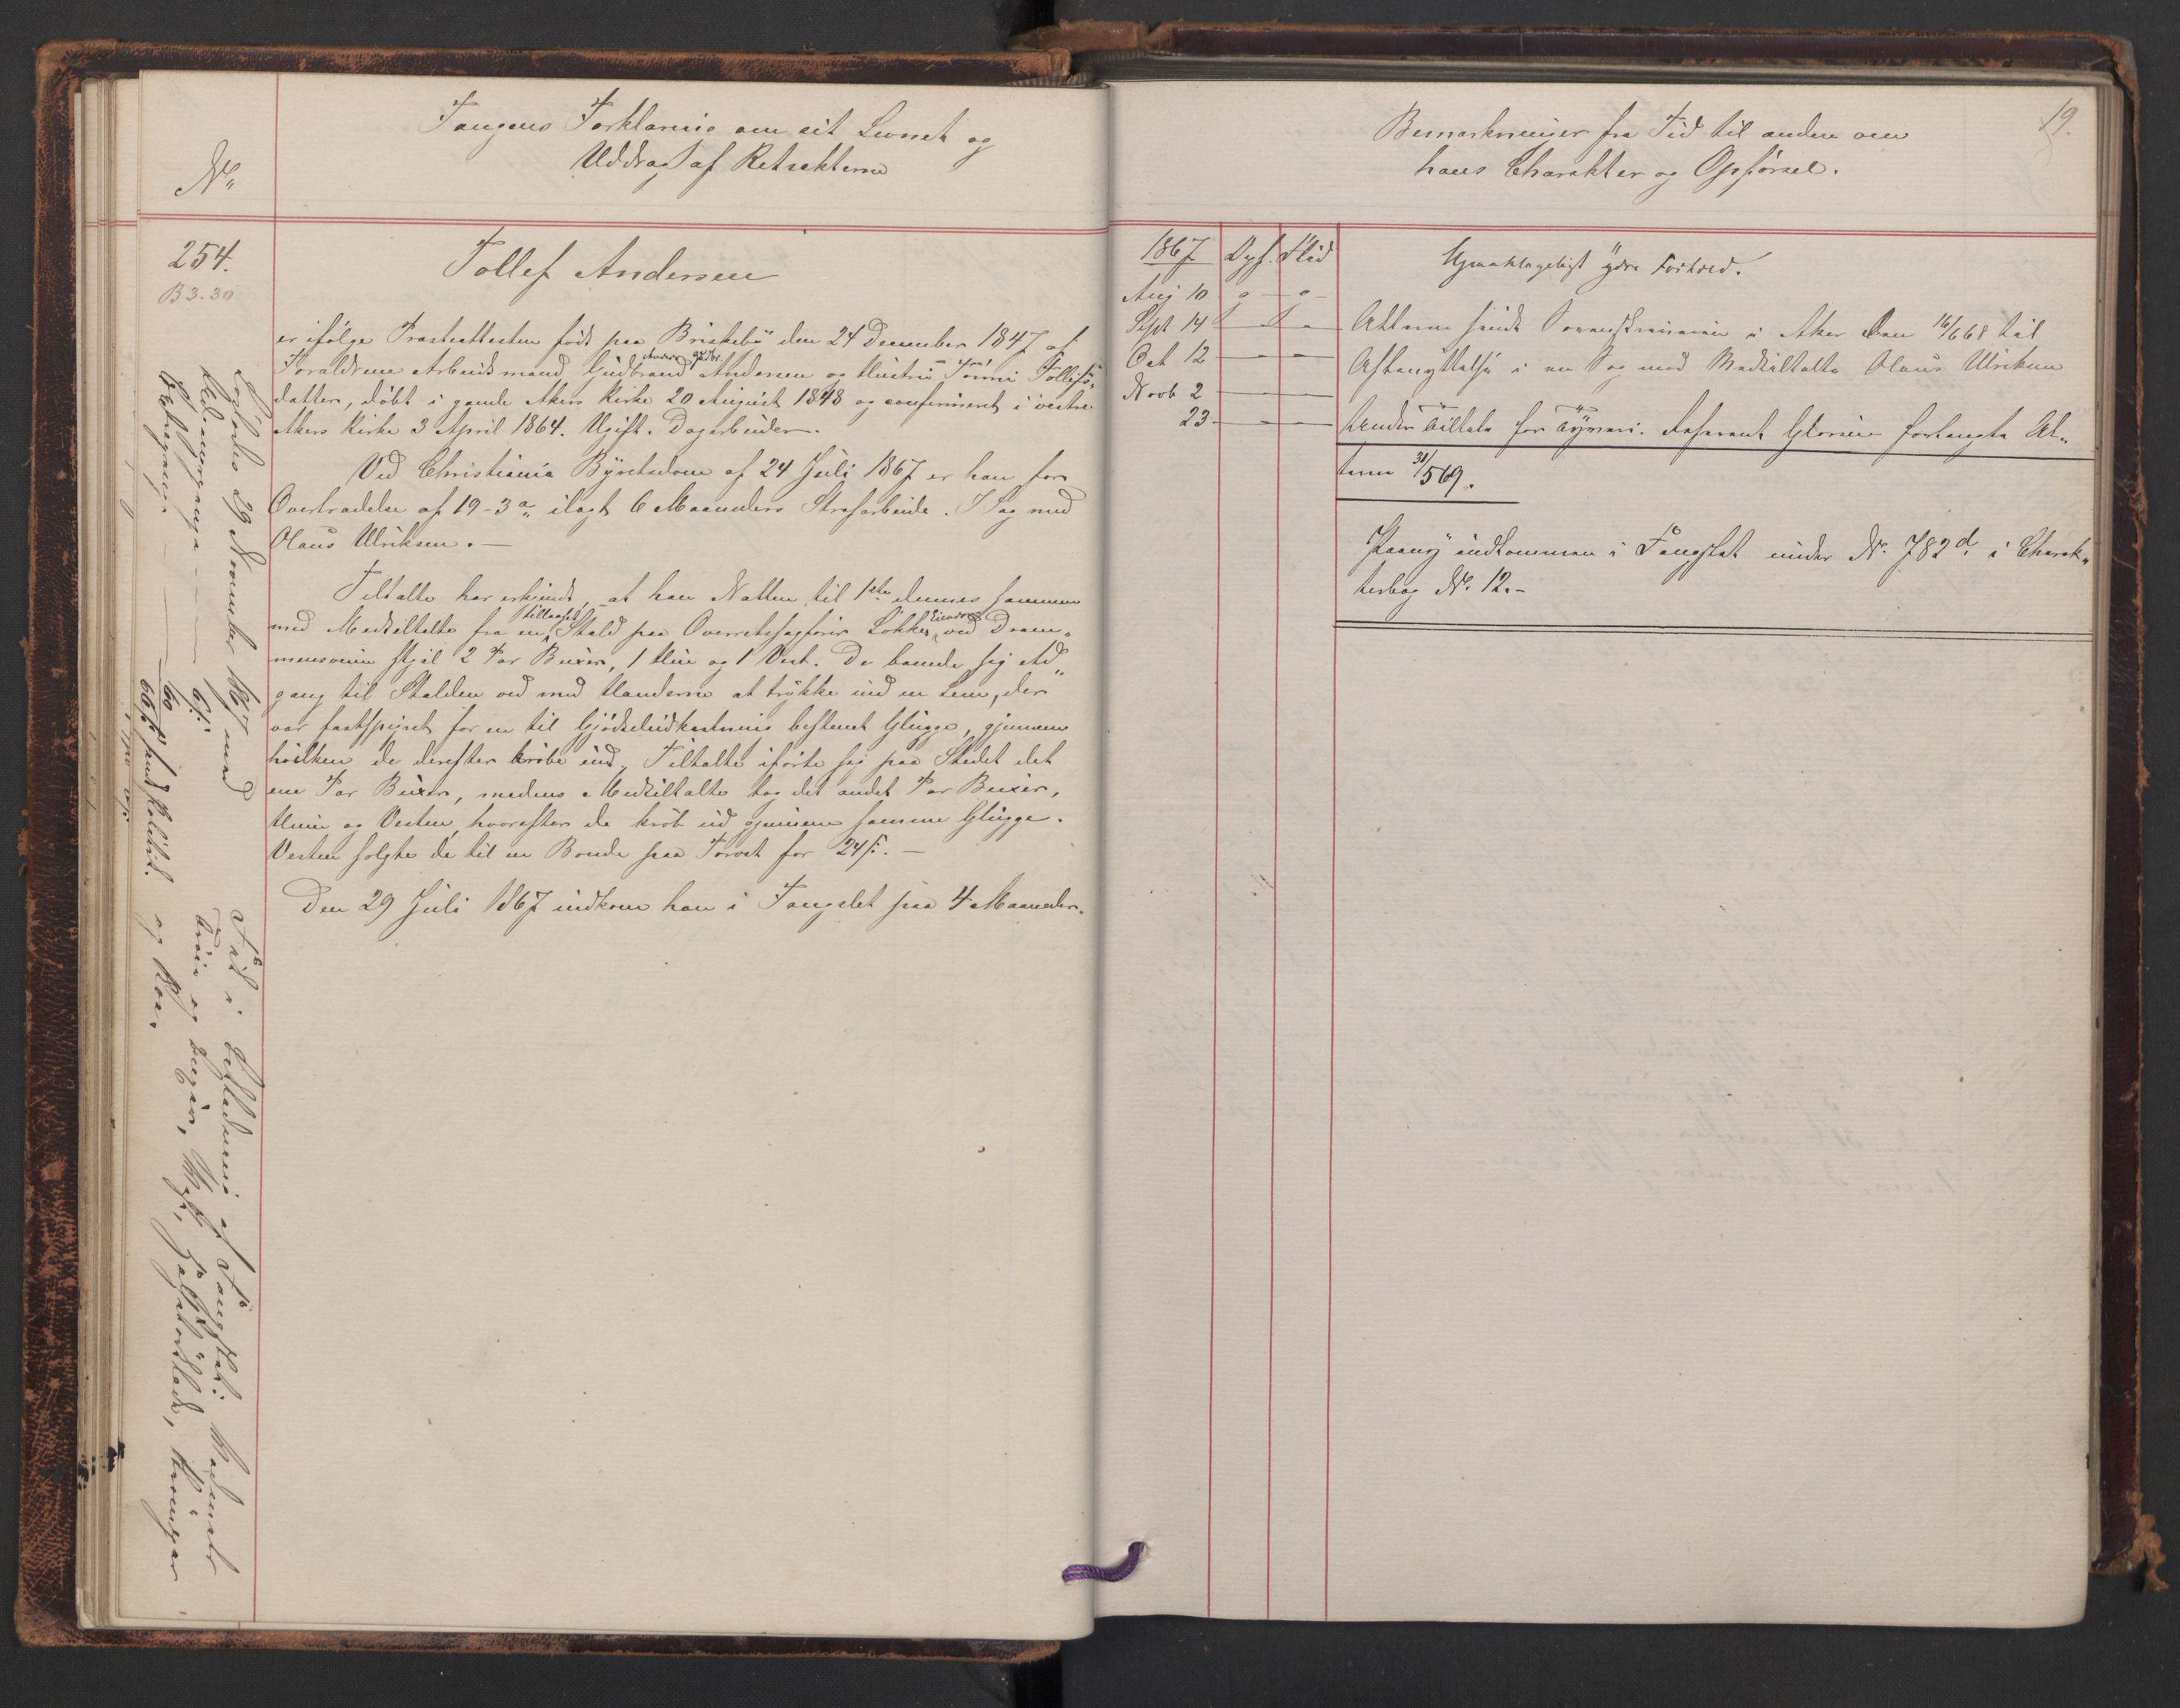 Fangens Forklaring om sit Levnet og
Uddrag af Retsakterne
No
254.
B 3.30
Tollef Andersen
er ifølge Præsteattesten født paa Briskeby den 24 December 1847 af
Forældrene Arbeidsmand Gudbrand Andersen og Hustru Tollefs„
datter, døbt i gamle Akers Kirke 20 August 1848 og confirmeret i vestre
Akers Kirke 3 April 1864. Ugift. Dagarbeider.
Ved Christiania Byretsdom af 24 Juli 1867 er han for
Overtrædelse af 19-3 a, ilagt 6 Maaneders Strafarbeide. I Sag med
Olaus Ulriksen.—
Tiltalte har erkjendt, at han Natten til 1ste dennes sammen
med Medtiltalte fra en tillaaset Stald paa Overretssagfører Løkkes Eiendom ved Dram„
mensveien stjal 2 Par Buxer, 1 Hue og 1 Vest. De banede sig Ad„
gang til Stalden ved med Hænderne at trykke ind en Lem, der
var fastspigret for en til Gjødseludkastning bestemt Glugge, gjennem
hvilken de derefter krøbe ind. Tiltalte iførte sig paa Stedet det
ene Par Buxer, medens Medtiltalte tog det andet Par Buxer,
Huen og Vesten, hvorefter de krøb ud gjennem samme Glugge.
Vesten solgte de til en Bonde paa Torvet for 24 ß.—
Den 29 Juli 1867 indkom han i Fangslet paa 4 Maaneder.
Løslodes 29 November 1867 med
6 ß
60
66 ß sendt Politiet.
Fik i Beklædning af Fangslet:
Trøie og Buxer, Vest, Halstørklæde, Strømper
og Skoe.
19.
Bemærkninger fra Tid til anden om
hans Charakter og Opførsel.
1867 Opf. Flid
Aug 10 g g
Sept 14 — —
Oct 12 — —
Novb 2 — —
23 — —
Upaaklageligt ydre Forhold.
Akterne sendt Sorenskriveren i Aker den 16/6 68 til
Afbenyttelse i en Sag mod Medtiltalte Olaus Ulriksen
Under Tiltale for Tyveri. forlangte Ak„
terne 31/5 69.
Paany indkommen i Fangslet under No. 782 d. i Charak„
terbog No. 12.-